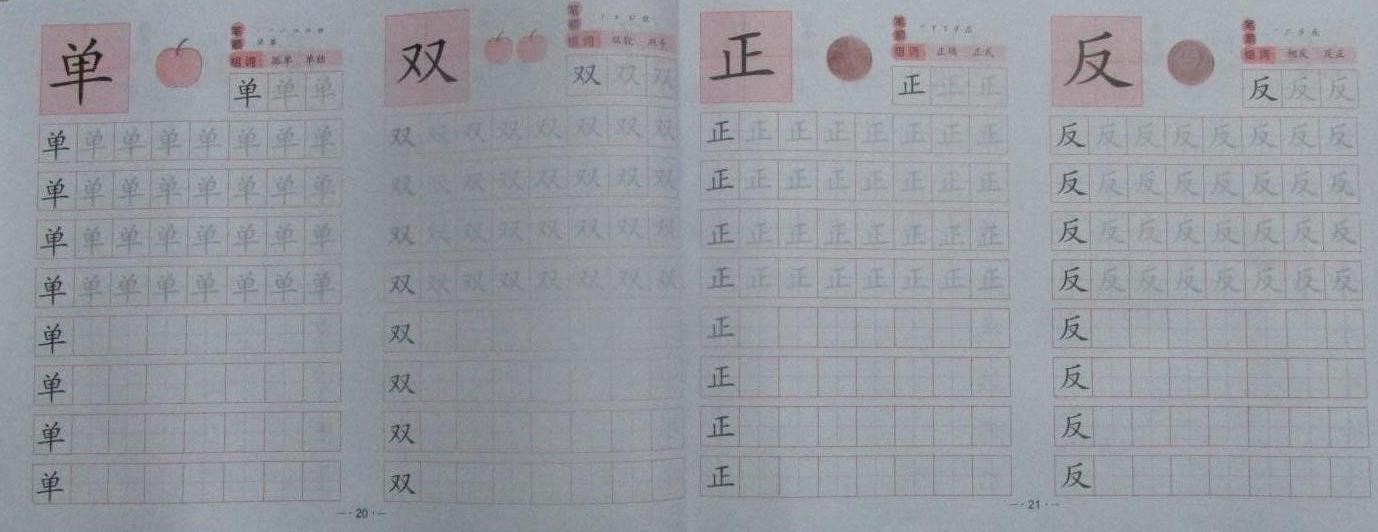 单
笔顺
组词 孤单
单 单 单
单 单 单 单 单 单 单 单
单 单 单 单 单 单 单 单
单 单 单 单 单 单 单 单
单 单 单 单 单 单 单 单
单
单
单
单
双
笔顺
组词 双手
双 双 双
双 双 双 双 双 双 双 双
双 双 双 双 双 双 双 双
双 双 双 双 双 双 双 双
双 双 双 双 双 双 双 双
双
双
双
双
20
正
笔顺
组词 正确 正式
正 正 正
正 正 正 正 正 正 正 正
正 正 正 正 正 正 正 正
正 正 正 正 正 正 正 正
正 正 正 正 正 正 正 正
正
正
正
正
反
笔顺
组词 相反 反正
反 反 反
反 反 反 反 反 反 反 反
反 反 反 反 反 反 反 反
反 反 反 反 反 反 反 反
反 反 反 反 反 反 反 反
反
反
反
反
21